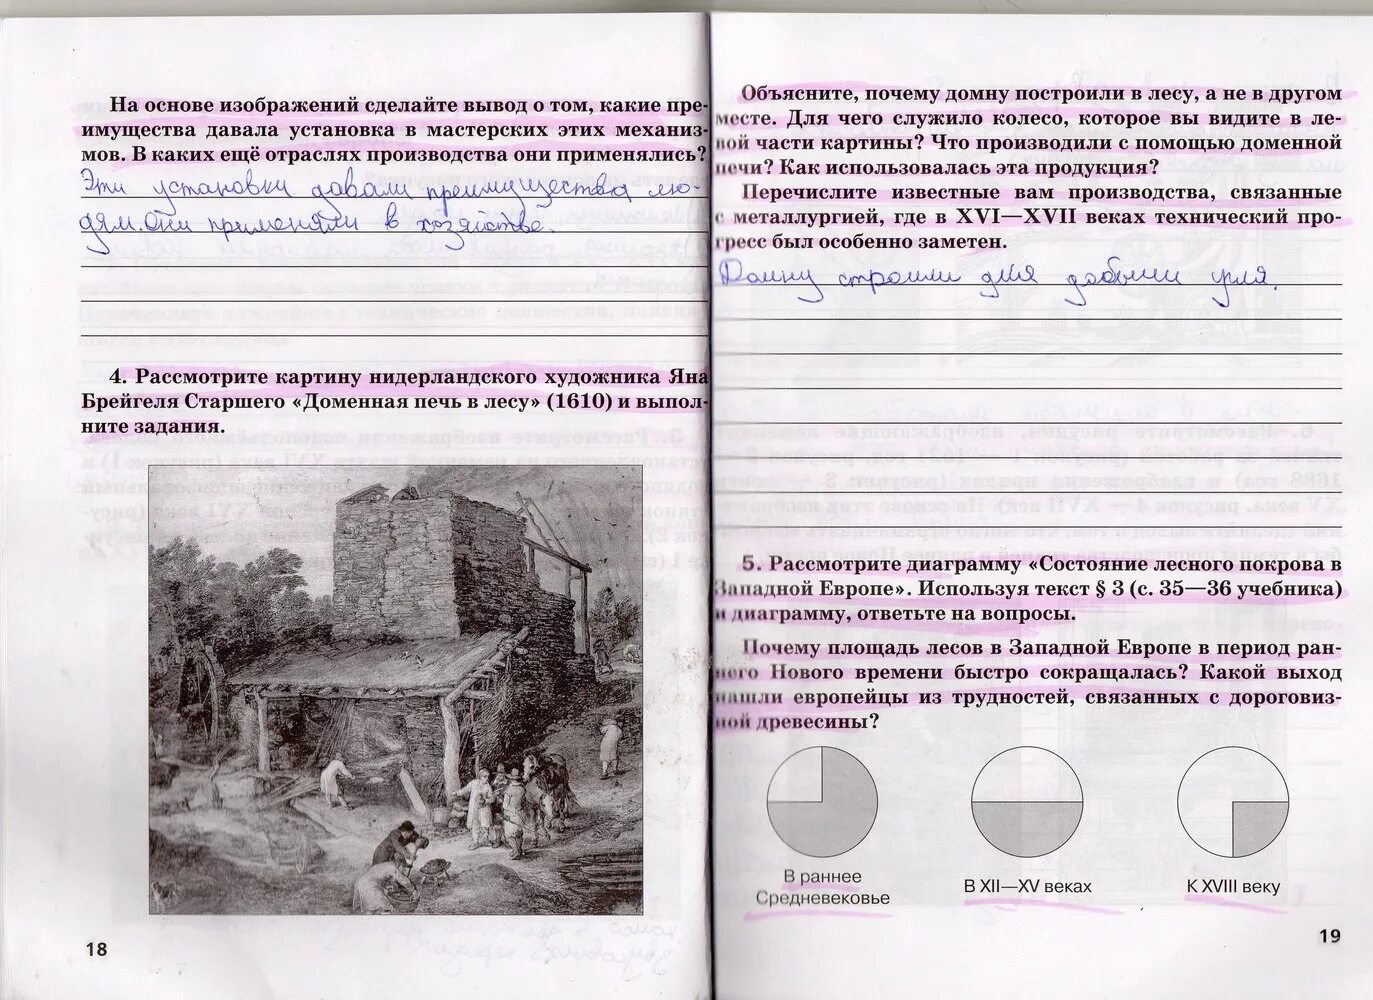 На основе изображений сделайте вывод о том, какие пре-
имущества давала установка в мастерских этих механиз-
мов. В каких ещё отраслях производства они применялись?
Эти установки давали преимущества лю-
дям. они применяли в хозяйстве.
4. Рассмотрите картину нидерландского художника Яна
Брейгеля Старшего «Доменная печь в лесу» (1610) и выпол-
ните задания.
18
Объясните, почему домну построили в лесу, а не в другом
месте. Для чего служило колесо, которое вы видите в ле-
вой части картины? Что производили с помощью доменной
печи? Как использовалась эта продукция?
Перечислите известные вам производства, связанные
с металлургией, где в XVI—XVII веках технический про-
гресс был особенно заметен.
Домну строили для добычи угля.
5. Рассмотрите диаграмму «Состояние лесного покрова в
Западной Европе». Используя текст § 3 (с. 35—36 учебника)
и диаграмму, ответьте на вопросы.
Почему площадь лесов в Западной Европе в период ран-
него Нового времени быстро сокращалась? Какой выход
нашли европейцы из трудностей, связанных с дороговиз-
ной древесины?
В раннее
Средневековье
В XII—XV веках
К XVIII веку
19